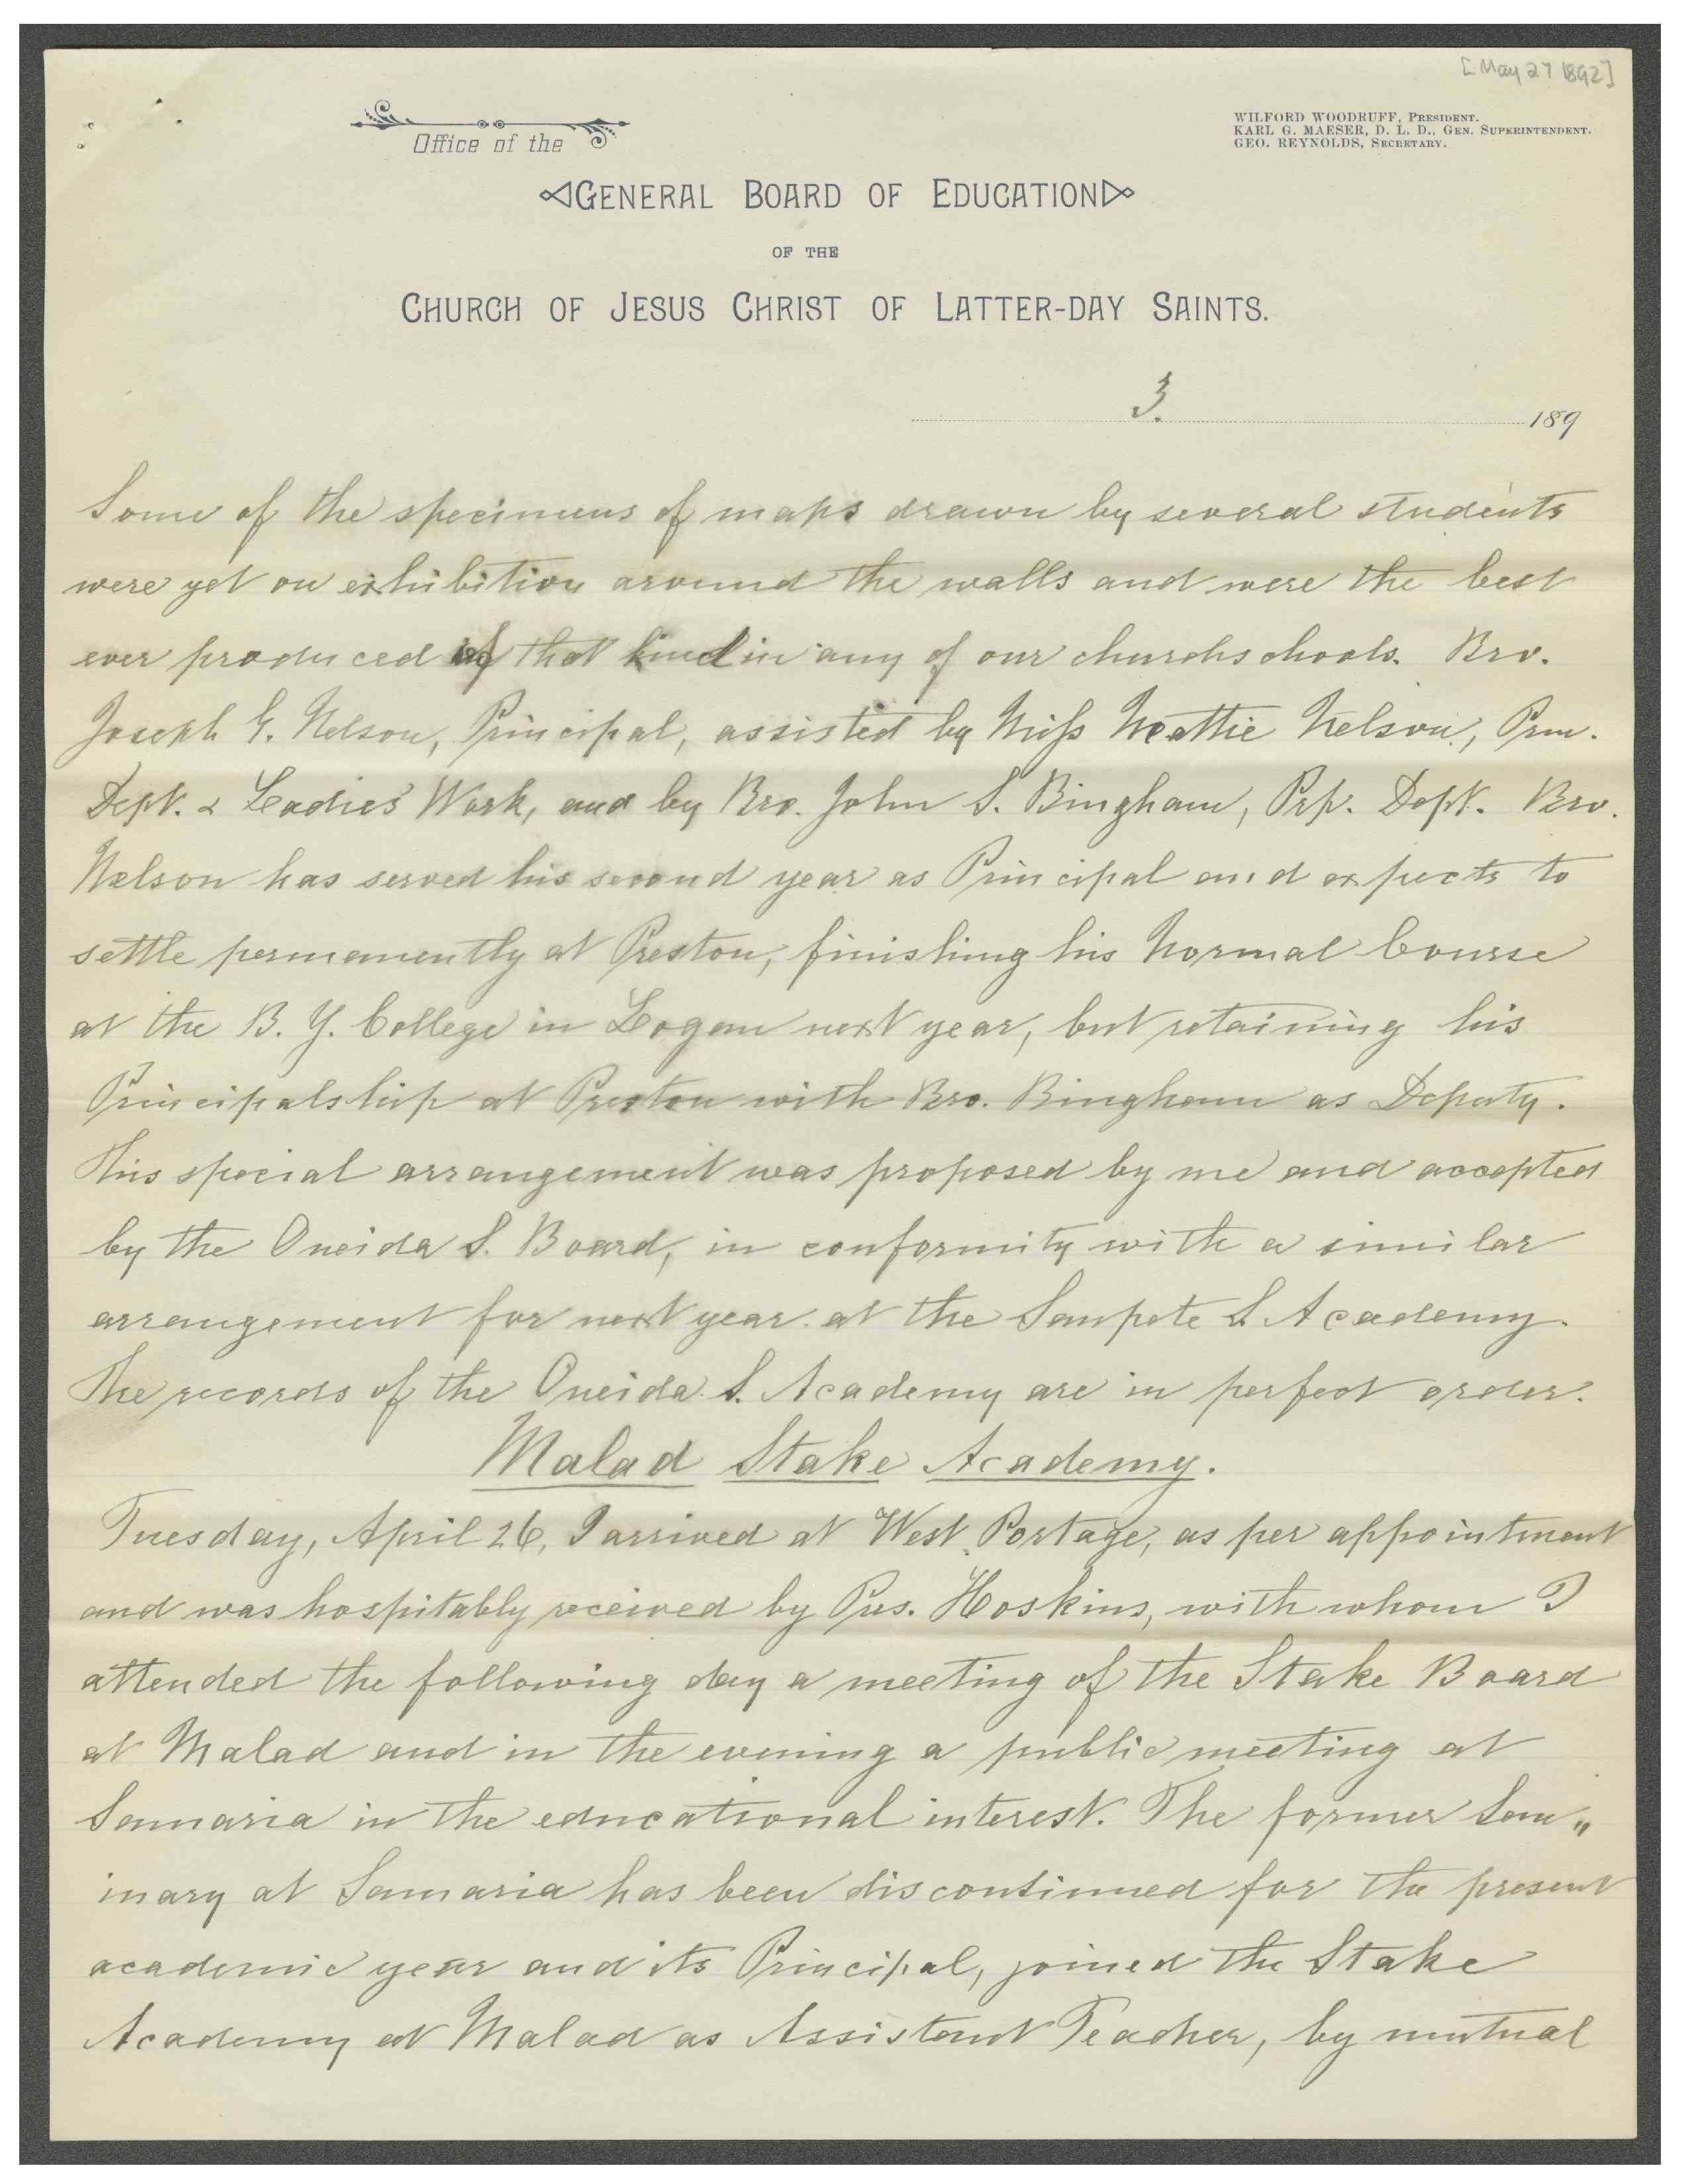 [May 27 1892]
Office of the
WILFORD WOODRUFF, PRESIDENT.
KARL G. MAESER, D. L. D., GEN. SUPERINTENDENT.
GEO. REYNOLDS, SECRETARY.
GENERAL BOARD OF EDUCATION
OF THE
CHURCH OF JESUS CHRIST OF LATTER-DAY SAINTS.
3. 189
Some of the specimens of maps drawn by several students
were yet on exhibition around the walls and were the best
ever produced of that kind in any of our churchschools. Bro.
Joseph G. Nelson, Principal, assisted by Miss Mattie Nelson, Prm.
Dept. & Ladies' Work, and by Bro. John S. Bingham, Prp. Dept. Bro.
Nelson has served his second year as Principal and expects to
settle permanently at Preston, finishing his Normal Course
at the B. Y. College in Logan next year, but retaining his
Principalship at Preston with Bro. Bingham as Deputy.
This special arrangement was proposed by me and accepted
by the Oneida S. Board, in conformity with a similar
arrangement for next year at the Sanpete S. Academy.
The records of the Oneida S. Academy are in perfect order.
Malad Stake Academy.
Tuesday, April 26, I arrived at West Portage, as per appointment
and was hospitably received by Pres. Hoskins, with whom I
attended the following day a meeting of the Stake Board
at Malad and in the evening a public meeting at
Samaria in the educational interest. The former Sem„
inary at Samaria has been discontinued for the present
academic year and its Principal, joined the Stake
Academy at Malad as Assistant Teacher, by mutual